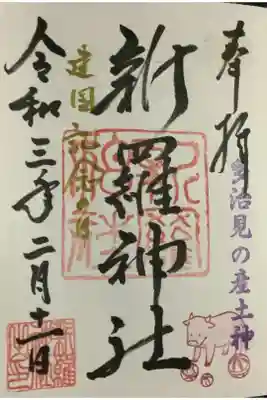 奉拝
多治見の産土神
新羅神社
建国記念の日
令和三年二月十一日